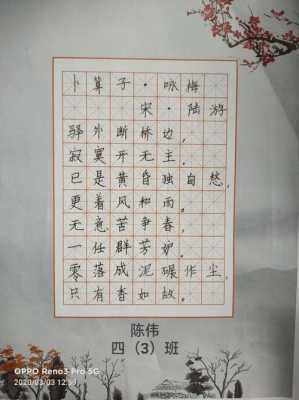 卜算子·咏梅
宋·陆游
驿外断桥边，
寂寞开无主。
已是黄昏独自愁，
更着风和雨。
无意苦争春，
一任群芳妒。
零落成泥碾作尘，
只有香如故。
陈伟
四（3）班
OPPO Reno3 Pro 5G
2020/03/03 12:59